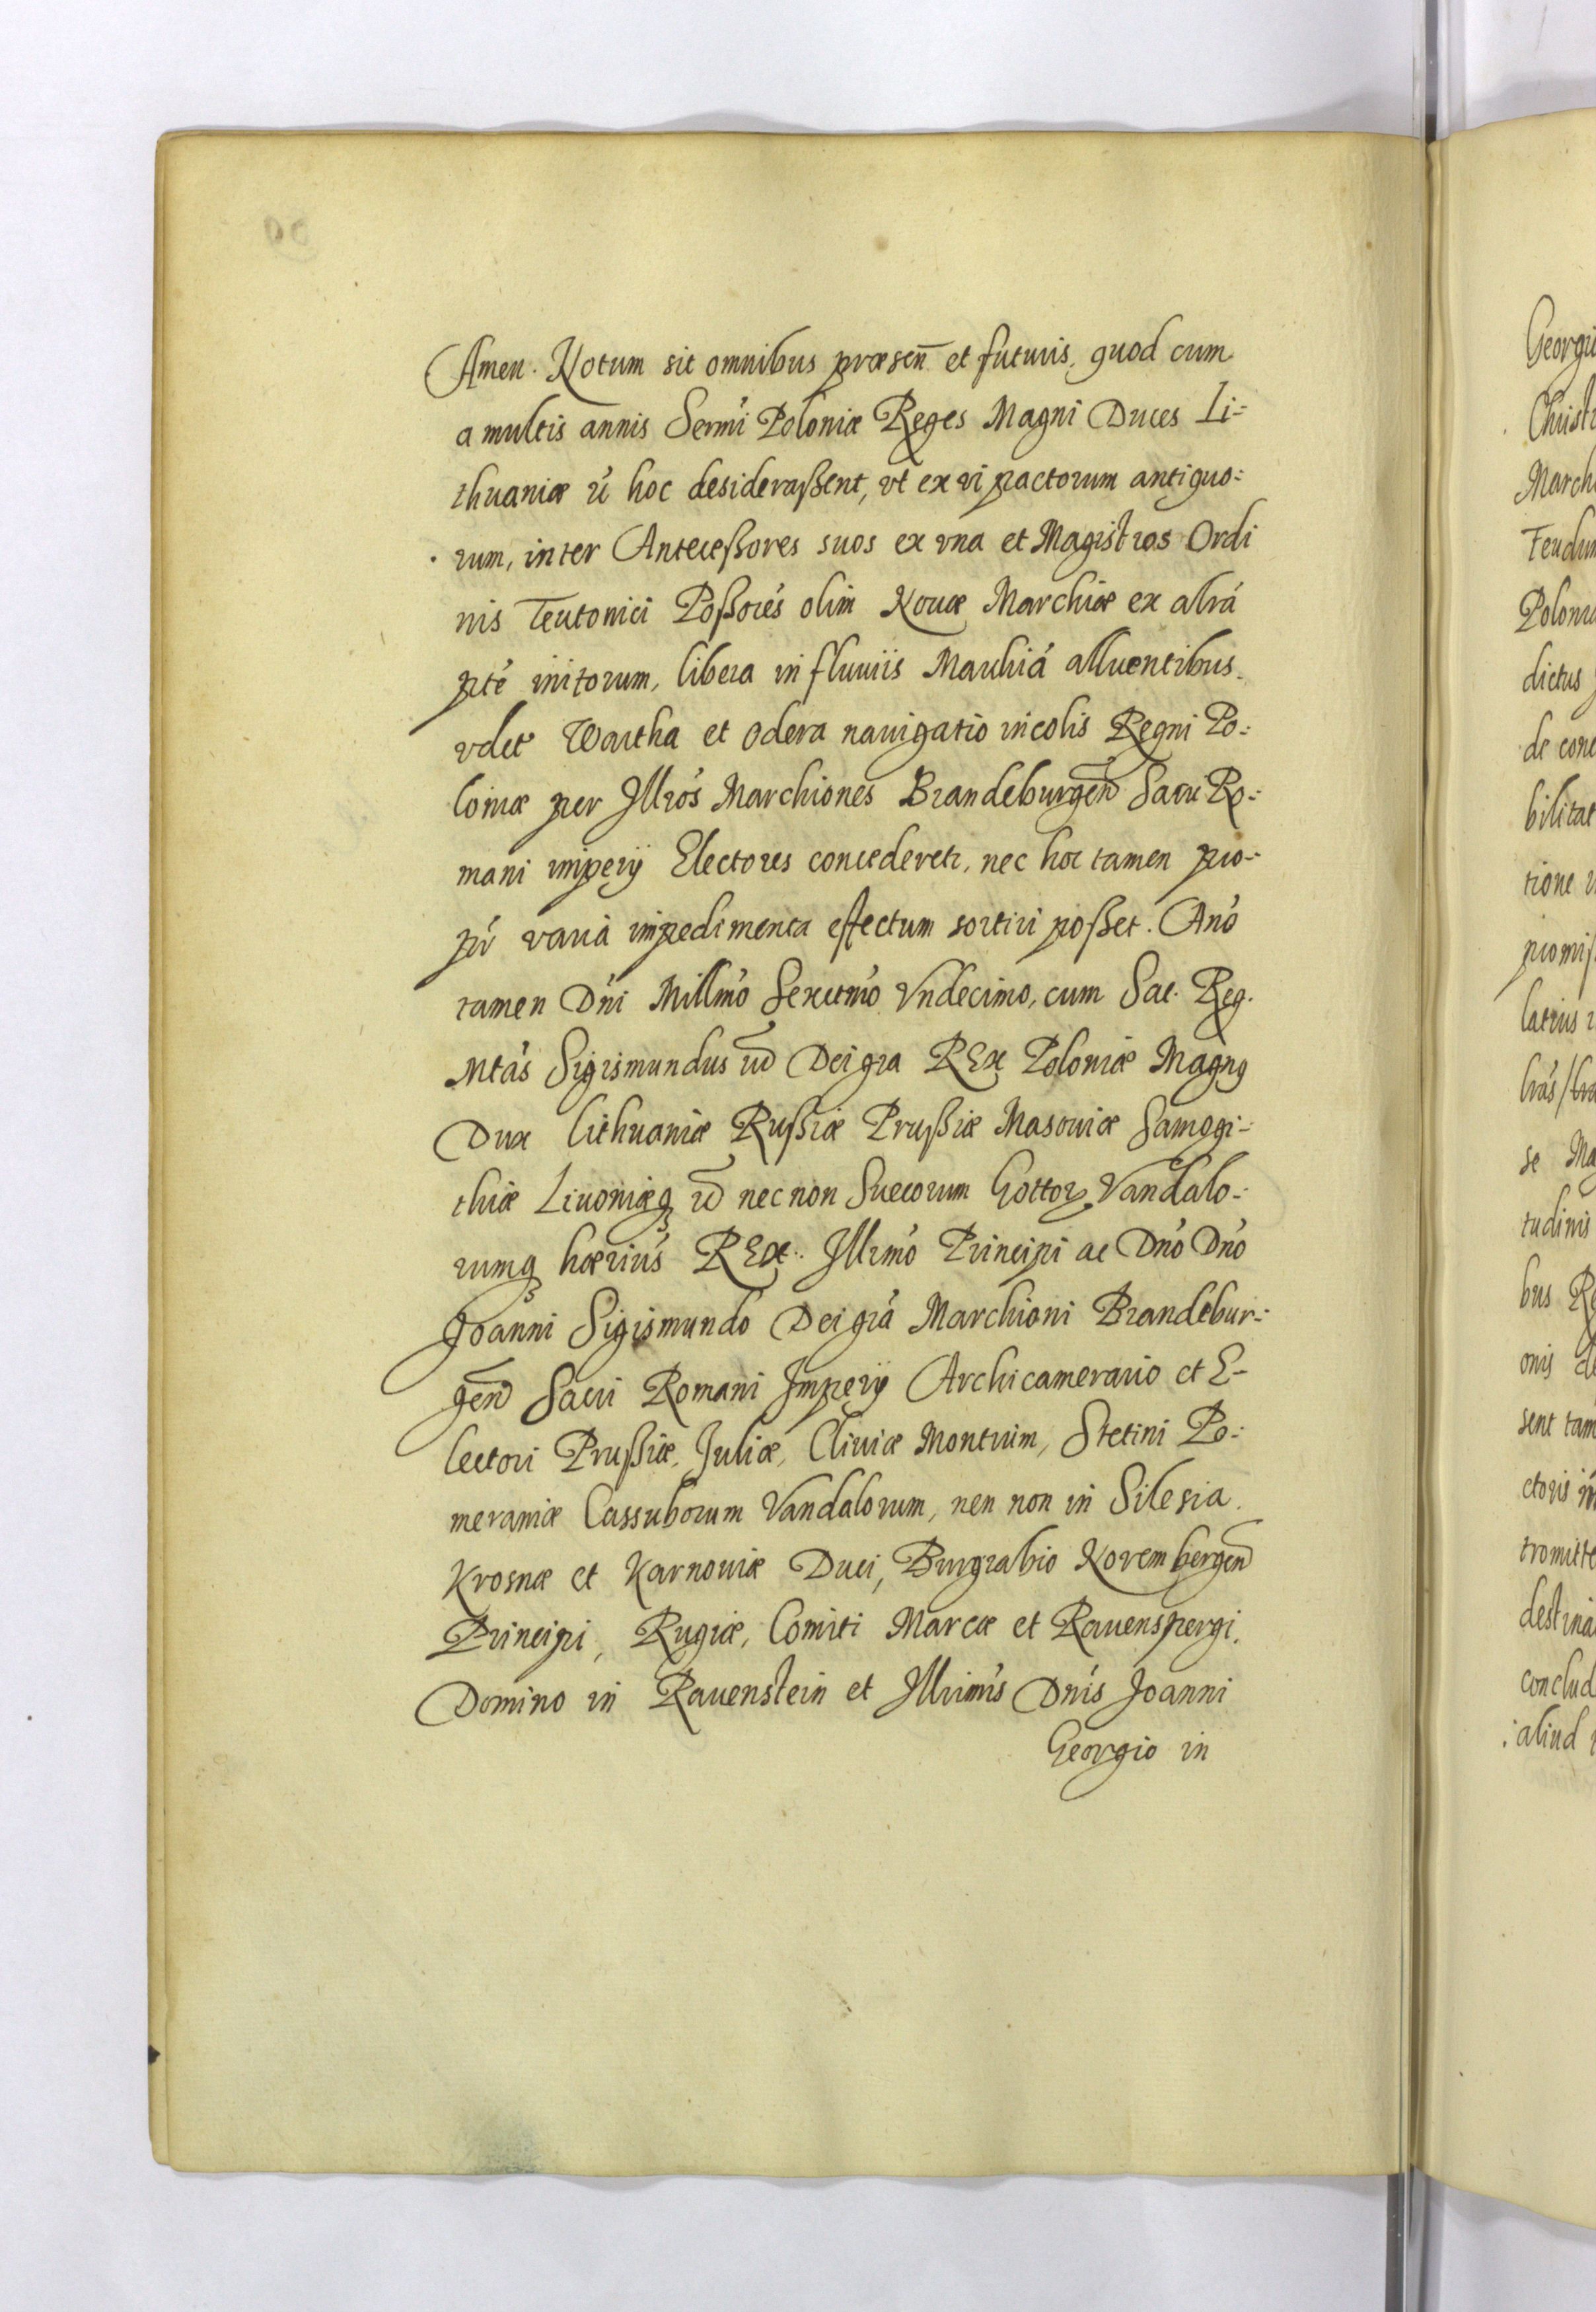 Amen. Notum sit omnibus præsen̄ et futuris, quod cum
a multis annis Sermi Poloniæ Reges Magni Duces Li-
thuaniæ ú hoc desideraßent, vt ex vi pactorum antiquo-
rum, inter Anteceßores suos ex vna et Magistros Ordi
nis Teutonici Poßorés olim Nouæ Marchiæ ex altrá
pté initorum, libera in fluuiis Marchiá alluentibus.
vdet Wartha et Odera nauigatio incolis Regni Po-
loniæ per Illrós Marchiones Brandeburgen Sacri Ro-
mani imperij Electores concederetr, nec hoc tamen pro-
ptr varia impedimenta effectum sortiri poßet. Anó
tamen Dni Millmó Sexctmó Vndecimo, cum Sac. Reg.
Mtás Sigismundus IIItius Dei gra REx Poloniæ Magnꝰ
Dux Lithuaniæ Rußiæ Prußiæ Masouiæ Samogi-
thiæ Liuoniæqꝫ etc nec non Suecorum Gottorꝝ Vandalo-
rumqꝫ hærius REx. Illrmó Principi ac Dnó Dnó
Joanni Sigismundo Dei grá Marchioni Brandebur-
gen Sacri Romani Imperij Archicamerario et E-
lectori Prußiæ, Juliæ, Cliuiæ Montium, Stetini Po-
meraniæ Cassuborum Vandalorum, nen non in Silesia.
Krosnæ et Karnouiæ Duci, Burgrabio Norembergen
Principi, Rugiæ, Comiti Marcæ et Rauenspergi,
Domino in Rauenstein et Illrimis Dnis Joanni
Georgio in
Georgi
Christi
March
Feudum
Polonia
dictus
de conc
bilitat
tione
promiß
latius
se Ma
tudinis
bus Re
onis
sent tam
ctoris
tromitte
destina
conclud
aliud